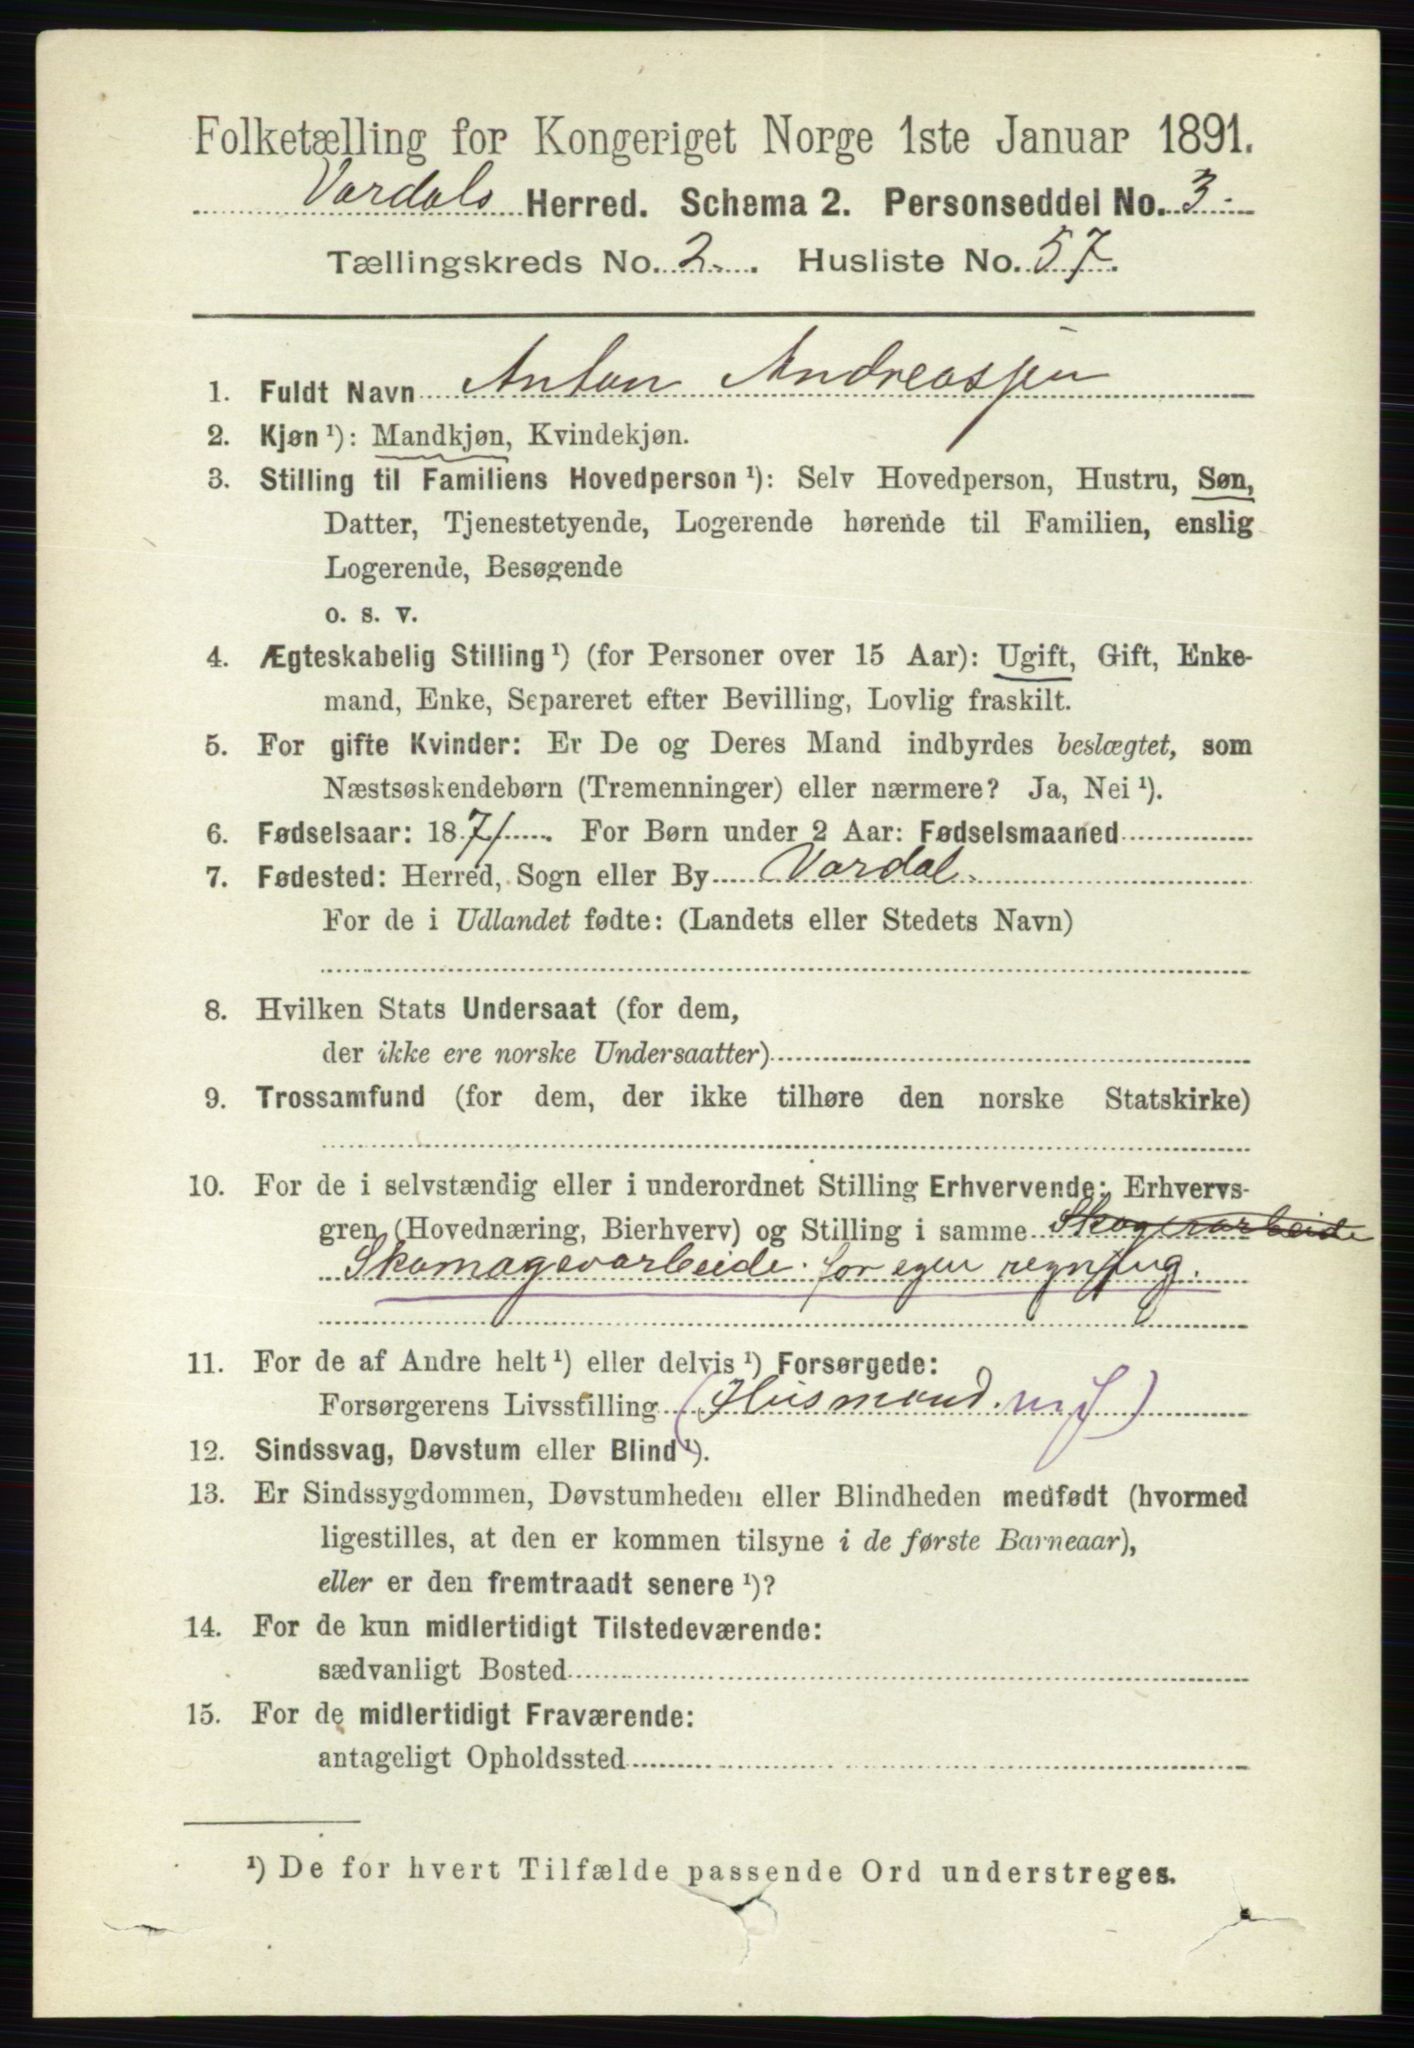 Folketælling for Kongeriget Norge 1ste Januar 1891.
Vardals Herred. Schema 2. Personseddel No. 3
Tællingskreds No. 2. Husliste No. 57.
1. Fuldt Navn Anton Andreassen
2. Kjøn ¹): Mandkjøn, Kvindekjøn.
3. Stilling til Familiens Hovedperson ¹): Selv Hovedperson, Hustru, Søn,
Datter, Tjenestetyende, Logerende hørende til Familien, enslig
Logerende, Besøgende
o. s. v.
4. Ægteskabelig Stilling ¹) (for Personer over 15 Aar): Ugift, Gift, Enke-
mand, Enke, Separeret efter Bevilling, Lovlig fraskilt.
5. For gifte Kvinder: Er De og Deres Mand indbyrdes beslægtet, som
Næstsøskendebørn (Tremenninger) eller nærmere? Ja, Nei ¹).
6. Fødselsaar: 1871. For Børn under 2 Aar: Fødselsmaaned
7. Fødested: Herred, Sogn eller By Vardal.
For de i Udlandet fødte: (Landets eller Stedets Navn)
8. Hvilken Stats Undersaat (for dem,
der ikke ere norske Undersaatter)
9. Trossamfund (for dem, der ikke tilhøre den norske Statskirke)
10. For de i selvstændig eller i underordnet Stilling Erhvervende: Erhvervs-
gren (Hovednæring, Bierhverv) og Stilling i samme Skogerarbeide
Skomagerarbeide for egen regning.
11. For de af Andre helt ¹) eller delvis ¹) Forsørgede:
Forsørgerens Livsstilling (Husmand. m J)
12. Sindssvag, Døvstum eller Blind ¹).
13. Er Sindssygdommen, Døvstumheden eller Blindheden medfødt (hvormed
ligestilles, at den er kommen tilsyne i de første Barneaar),
eller er den fremtraadt senere ¹)?
14. For de kun midlertidigt Tilstedeværende:
sædvanligt Bosted
15. For de midlertidigt Fraværende:
antageligt Opholdssted
¹) De for hvert Tilfælde passende Ord understreges.